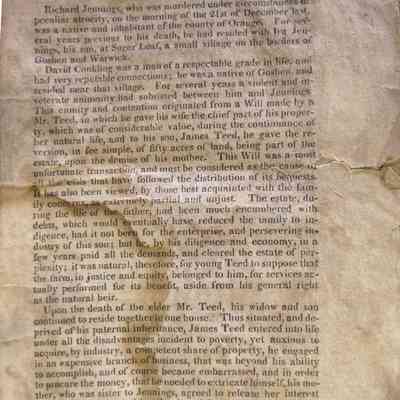 Richard Jennings, who was murdered under circumstances of
peculiar atrocity, on the morning of the 21st of December last,
was a native and inhabitant of the county of Orange. For sev-
eral years previous to his death, he had resided with Ira Jen-
nings, his son, at Sugar Loaf, a small village on the borders of
Goshen and Warwick.
David Conkling was a man of a respectable grade in life, and
had very repetable connections; he was a native of Goshen, and
resided near that village. For several years a violent and in-
veterate animosity had subsisted between him and Jennings.
This enmity and contention originated from a Will made by a
Mr. Teed, in which he gave his wife the chief part of his proper-
ty, which was of considerable value, during the continuance of
her natural life, and to his son, James Teed, he gave the re-
version, in fee simple, of fifty acres of land, being part of the
estate, upon the demise of his mother. This Will was a most
unfortunate transaction, and must be considered as the cause
of the crisis that have followed the distribution of its bequests.
It has also been viewed, by those best acquainted with the fam-
ily concerns, as extremely partial and unjust. The estate, du-
ring the life of the father, had been much encumbered with
debts, which would eventually have reduced the family to in-
digence, had it not been for the enterprise, and persevering in-
dustry of this son; but he, by his diligence and economy, in a
few years paid all the demands, and cleared the estate of per-
plexity; it was natural, therefore, for young Teed to suppose that
the farm, in justice and equity, belonged to him, for services ac-
tually performed for its benefit, aside from his general right
as the natural heir.
Upon the death of the elder Mr. Teed, his widow and son
continued to reside together in one house. Thus situated, and de-
prived of his paternal inheritance, James Teed entered into life
under all the disadvantages incident to poverty, yet anxious to
acquire, by industry, a competent share of property, he engaged
in an expensive branch of business, that was beyond his ability
to accomplish, and of course became embarrassed, and in order
to procure the money, that he needed to extricate himself, his mo-
ther, who was sister to Jennings, agreed to release her interest